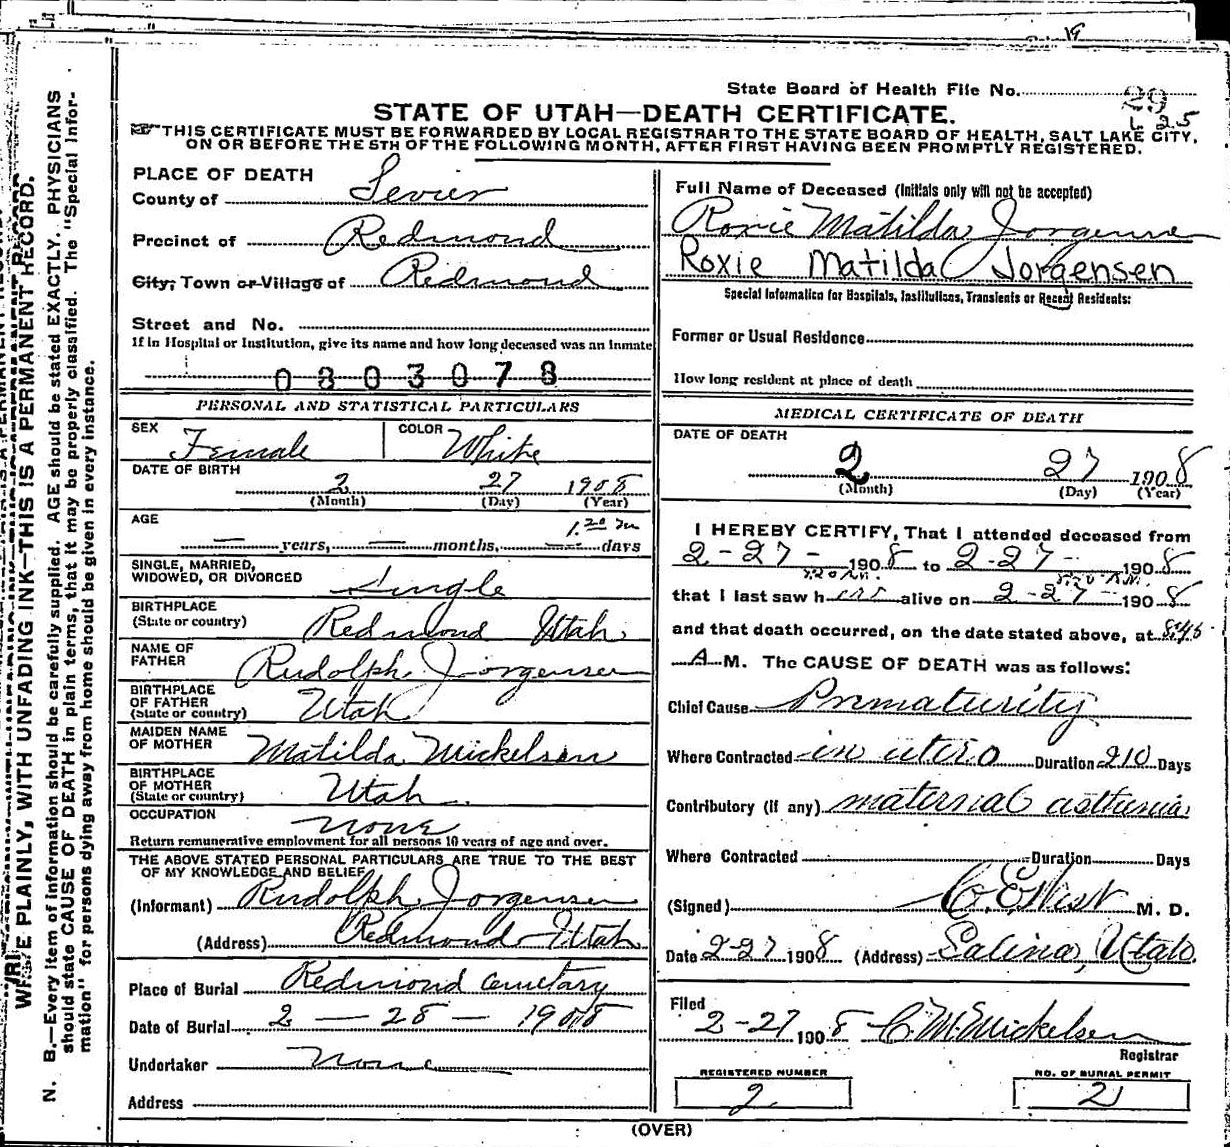 State Board of Health File No. 29
L 25
STATE OF UTAH—DEATH CERTIFICATE.
THIS CERTIFICATE MUST BE FORWARDED BY LOCAL REGISTRAR TO THE STATE BOARD OF HEALTH, SALT LAKE CITY,
ON OR BEFORE THE 5TH OF THE FOLLOWING MONTH, AFTER FIRST HAVING BEEN PROMPTLY REGISTERED.
WRITE PLAINLY, WITH UNFADING INK—THIS IS A PERMANENT RECORD.
N. B.—Every item of information should be carefully supplied. AGE should be stated EXACTLY. PHYSICIANS
should state CAUSE OF DEATH in plain terms, that it may be properly classified. The "Special Infor-
mation" for persons dying away from home should be given in every instance.
PLACE OF DEATH
County of Sevier
Precinct of Redmond
City, Town or Village of Redmond
Street and No.
If in Hospital or Institution, give its name and how long deceased was an inmate
0803078
PERSONAL AND STATISTICAL PARTICULARS
SEX Female COLOR White
DATE OF BIRTH
2 27 1908
(Month) (Day) (Year)
AGE
— years, — months, — days
SINGLE, MARRIED,
WIDOWED, OR DIVORCED Single
BIRTHPLACE
(State or country) Redmond Utah
NAME OF
FATHER Rudolph Jorgensen
BIRTHPLACE
OF FATHER
(State or country) Utah
MAIDEN NAME
OF MOTHER Matilda Mickelsen
BIRTHPLACE
OF MOTHER
(State or country) Utah
OCCUPATION none
Return remunerative employment for all persons 10 years of age and over.
THE ABOVE STATED PERSONAL PARTICULARS ARE TRUE TO THE BEST
OF MY KNOWLEDGE AND BELIEF
(Informant) Rudolph Jorgensen
(Address) Redmond Utah
Place of Burial Redmond Cemetary
Date of Burial 2 — 28 — 1908
Undertaker none
Address
Full Name of Deceased (Initials only will not be accepted)
Roxie Matilda Jorgensen
Roxie Matilda Jorgensen
Special Information for Hospitals, Institutions, Transients or Recent Residents:
Former or Usual Residence
How long resident at place of death
MEDICAL CERTIFICATE OF DEATH
DATE OF DEATH
2 27 1908
(Month) (Day) (Year)
I HEREBY CERTIFY, That I attended deceased from
2-27- 1908 to 2-27- 1908
that I last saw her alive on 2-27- 1908
and that death occurred, on the date stated above, at 8:45
A M. The CAUSE OF DEATH was as follows:
Chief Cause Prematurity
Where Contracted in utero Duration 210 Days
Contributory (if any) maternal asthenia
Where Contracted Duration Days
(Signed) C. E. West M. D.
Date 2-27 1908 (Address) Salina, Utah.
Filed
2-27 1908 C. M. Mickelsen
Registrar
REGISTERED NUMBER
2
NO. OF BURIAL PERMIT
2
(OVER)